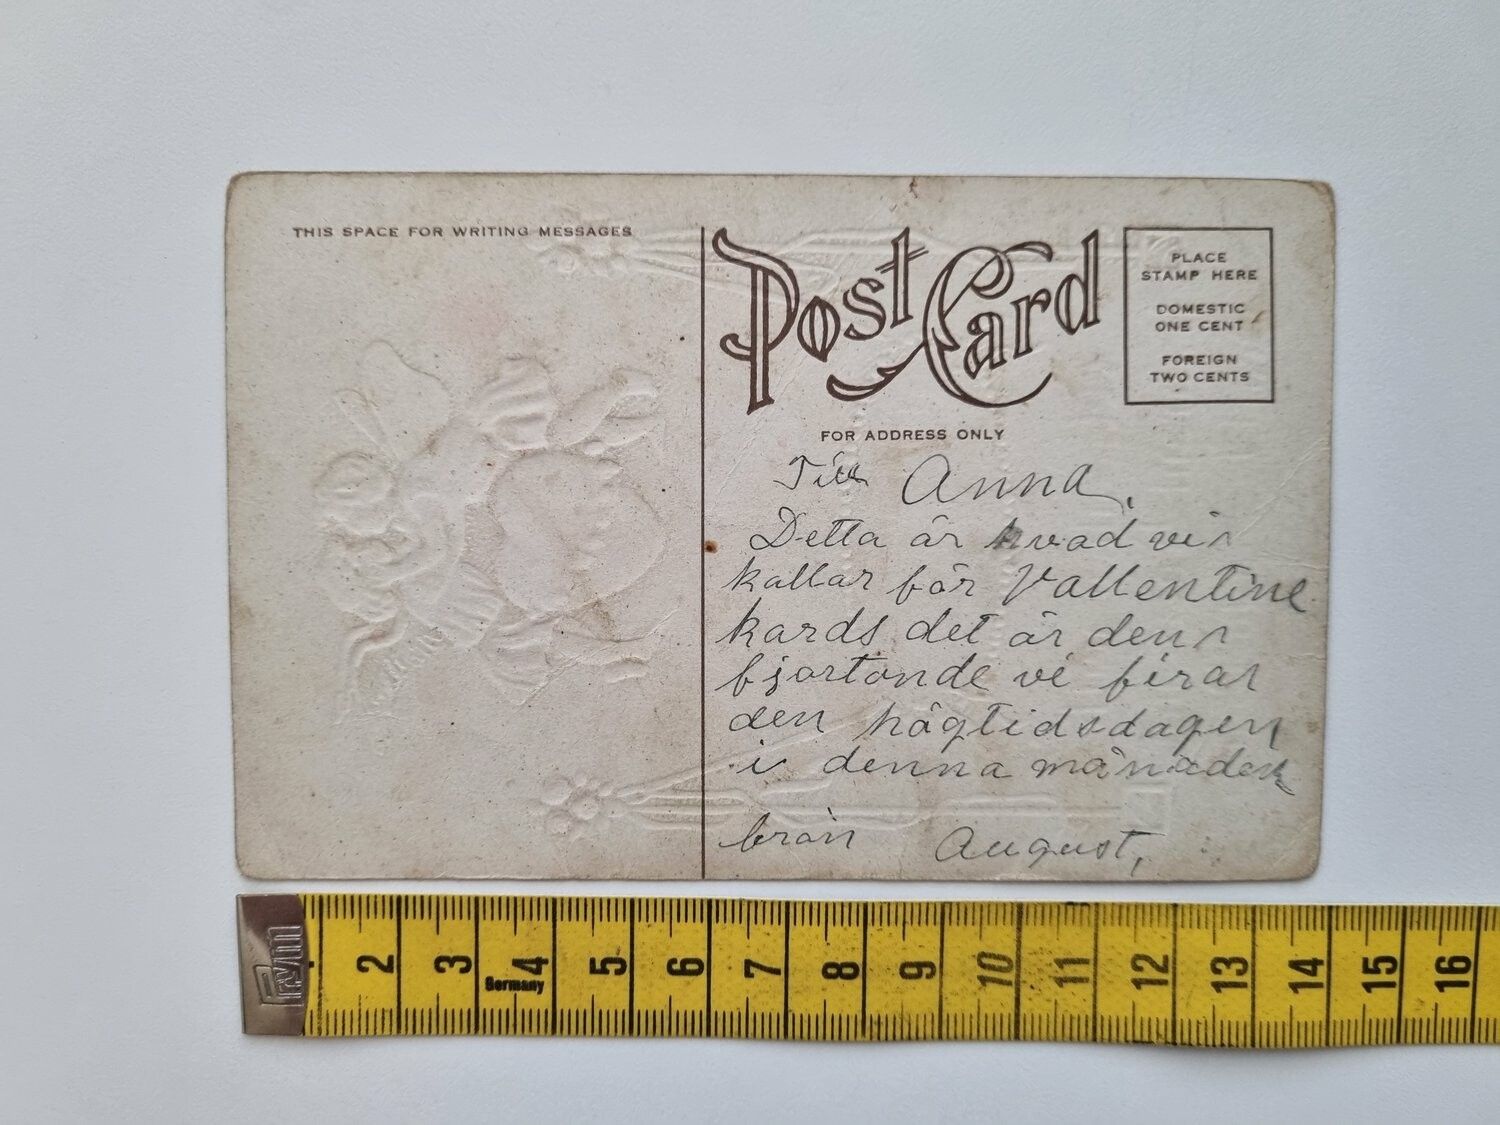 THIS SPACE FOR WRITING MESSAGES
Post Card
PLACE
STAMP HERE
DOMESTIC
ONE CENT
FOREIGN
TWO CENTS
FOR ADDRESS ONLY
Till Anna,
Detta är hvad vi
kallar för Vallentine
kards det är den
fjortonde vi firar
den högtidsdagen
i denna månaden
från August,
Prym
2 3 4 5 6 7 8 9 10 11 12 13 14 15 16
Germany